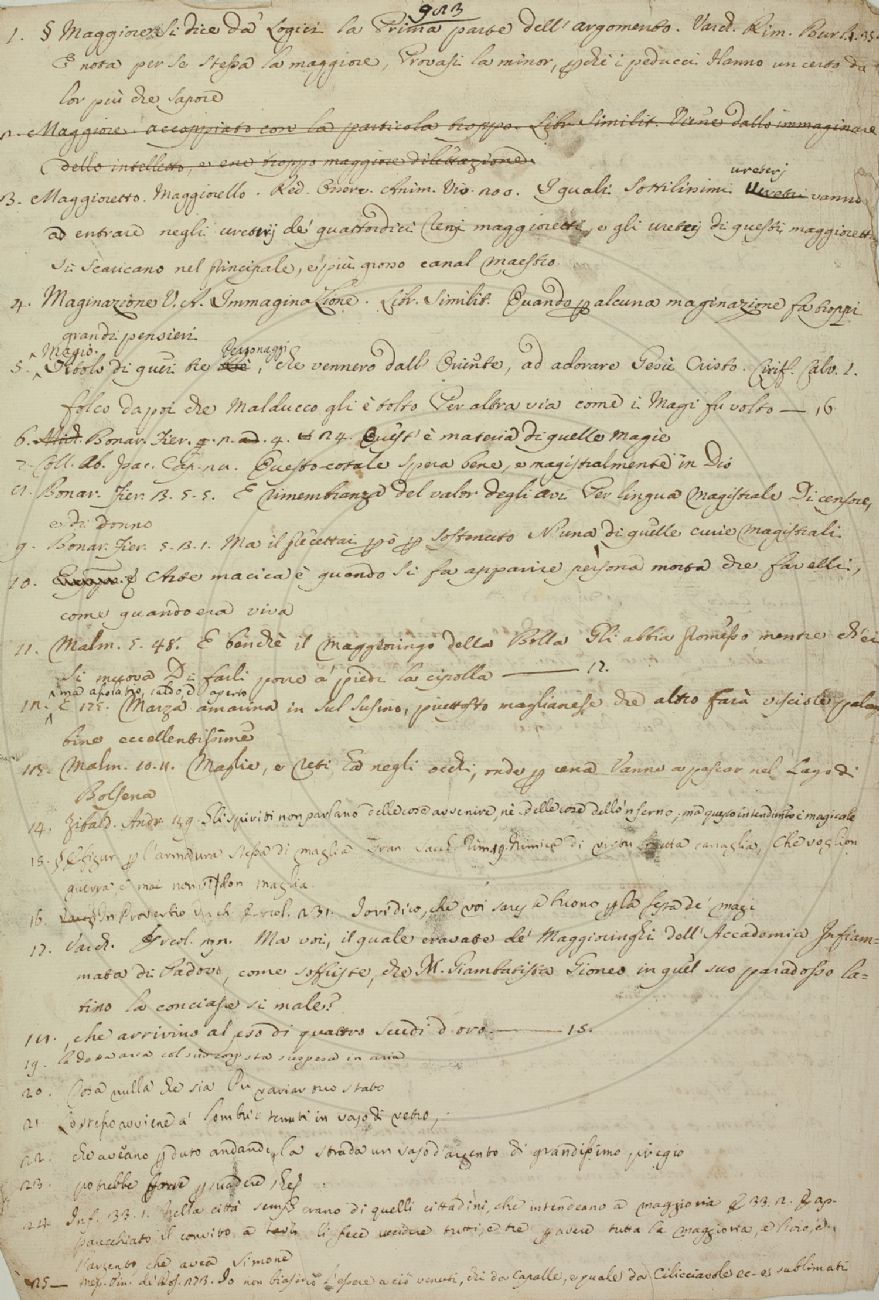 923
1. § Maggiore. Si dice da' Logici la Prima parte dell' argomento. Varch. Rim. Burl. 1. 35.
È nota per se stessa la maggiore, Provasi la minor, pchè i peducci Hanno un certo
lor più che sapore
2. Maggiore. accoppiato con la particola troppo. Libr. Similit. Viene dallo immaginare
dello intelletto, troppo maggiore dilettazione.
ureterj
3. Maggioretto. Maggiorello. Red. Osserv. Anim. Viv. I quali sottilissimi vanno
ad entrare negli ureterj de' quattordici renj maggioretti, e gli ureterj di questi maggioretti
si scaricano nel principale, e più grosso canal maestro
4. Maginazione V. A. Immaginazione. Libr. Similit. Quando p alcuna maginazione fa troppi
grandi pensieri
Magio. Personaggi
5. Titolo di quei tre, che vennero dall' Oriente, ad adorare Gesù Cristo. Ciriff. Calv. 1.
folco dapoi che Malducco gli è tolto Per altra via come i Magi fu volto — 16
6. Bonar. Fier. 4. 24. Quest' è materia di quelle magie
7. Coll. Ab. Isac. Cap. Questo cotale spera bene, e magistralmente in Dio
8. Bonar. Fier. 3. 5. 5. E rimembranza del valor degli avi Per lingua magistrale Di censore,
e di donno
9. Bonar. Fier. 5. 3. 1. Ma il ricettai, pò p sostenuto N'una di quelle curie magistrali
10. Arte macica è quando si fa apparire persona morta che favelli,
come quando era viva
11. Malm. 5. 45. E benchè il maggioringo della Bolla Gli abbia promesso mentre ch'ei
si muova Di farli porre a' piedi la cipolla — 12.
ma asciatto, caldo, e aperto
12. E 175. Marza amarina in sul susino, piuttosto maglianese che altro farà visciole palom
bine eccellentissime
13. Malm. 10. 11. Maglie, e reti Ea negli occhi, onde p cena Vanno a pascar nel Lago di
Bolsena
14. Zibald. Andr. 139. Gli spiriti non parlano delle cose avvenire, nè delle cose dello'nferno, ma questo intendimento è magicale
15. § Figur. p l'armadura stessa di maglia Fran. Sacch. Rim. 19. Nimica di virtù bruta canaglia, Che voglion
guerra, e mai non vestîon maglia.
16. In Proverbio Varch. Ercol. 231. Io vi dico, che voi sarej buono p la festa de' magi
17. Varch. Ercol. Ma voi, il quale eravate de' Maggioringhi dell' Accademia Infiam-
mata di Padova, come soffriste, che M. Giambatista Gioneo in quel suo paradosso la-
tino la conciasse si male?
18. , che arrivino al peso di quattro scudi d'oro — 15.
19. la detta arca col suo corpo sta sospesa in aria
20. Cosa nulla che sia Può variar suo stato
21. Lo stesso avviene a' lombrichi tenuti in vaso di vetro,
22. che aveano pduto andando p la strada un vaso d'argento di grandissimo pregio
23. potrebbe psuadere
24. Inf. 33. 1. Nella città erano di quelli cittadini, che intendeano a maggioria E 33. 2. E ap-
parecchiato il convito li fece uccidere tutti, e tre p avere tutta la maggioria, e l'oro, e
l'argento che avea Simone
25 — Io non biasimo l'essere a ciò venuti, chi da Capalle, e quale da Cilicciavole ec. es sublimati